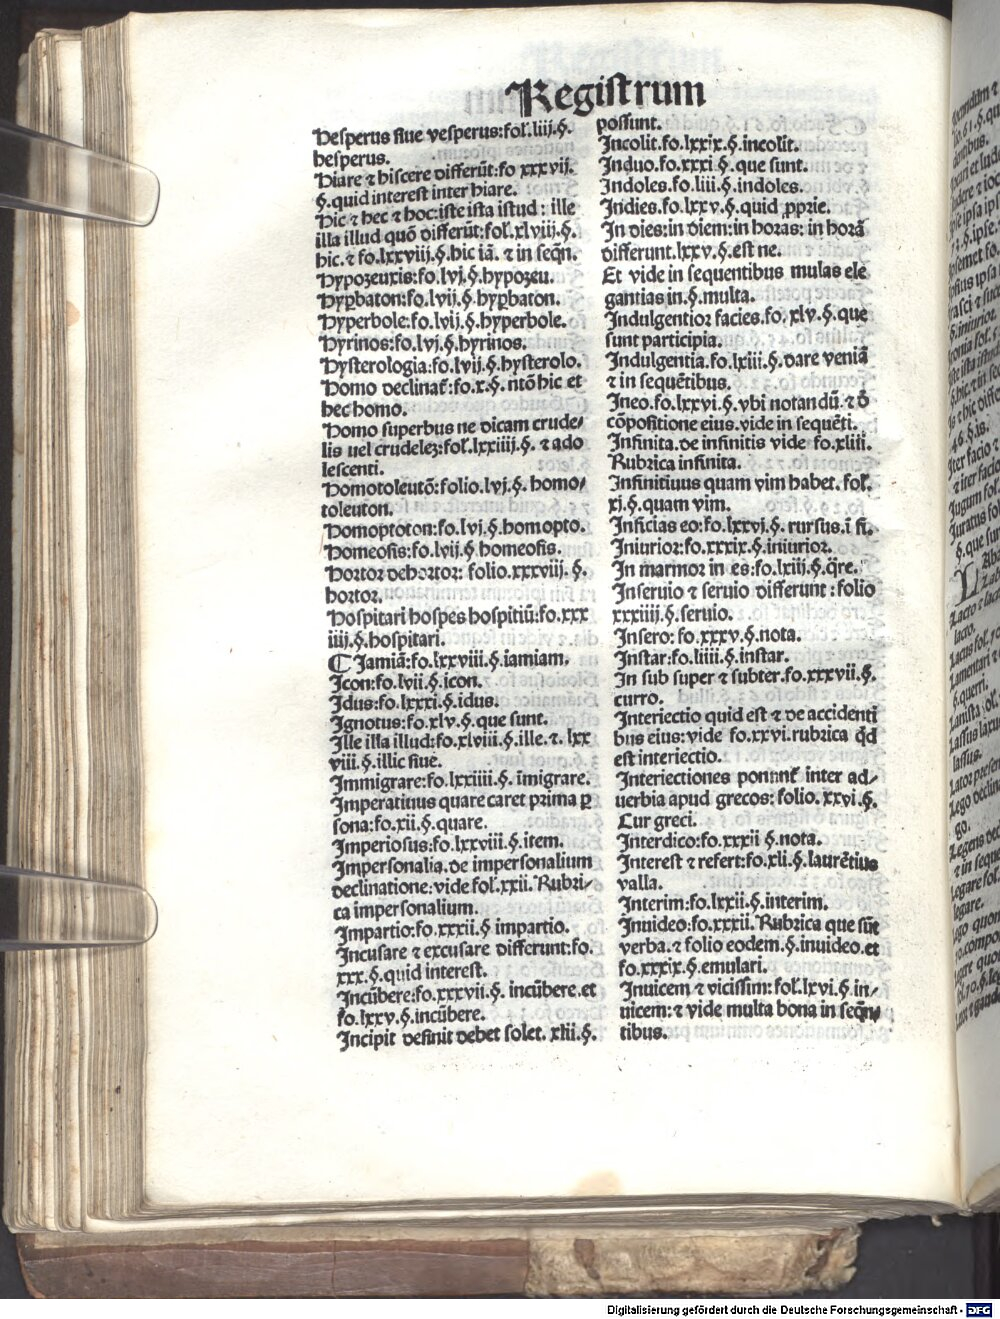 Registrum
Hesperus siue vesperus:fol.liij.§.
hesperus.
Hiare ⁊ hiscere differūt:fo xxxvij.
§.quid interest inter hiare.
Hic ⁊ hec ⁊ hoc:iste ista istud: ille
illa illud quō differūt:fol.xlviij.§.
hic.⁊ fo.lxxviij.§.hic iā. ⁊ in seqn̄.
Hypozeuxis:fo.lvj.§.hypozeu.
Hyꝑbaton:fo.lvij.§.hyꝑbaton.
Hyperbole:fo.lvij.§.hyperbole.
Hyrinos:fo.lvj.§.hyrinos.
Hysterologia:fo.lvij.§.hysterolo.
Homo declinat̄:fo.x.§. ntō hic et
hec homo.
Homo superbus ne dicam crude/
lis uel crudelez:fol.lxxiiij.§. ⁊ ado
lescenti.
Homotoleutō:folio.lvj.§. homo/
toleuton.
Homoptoton:fo.lvj.§.homopto.
Homeosis:fo.lvij.§.homeosis.
Hortor dehortor: folio.xxxviij. §.
hortor.
Hospitari hospes hospitiū:fo.xxx
iiij.§.hospitari.
¶ Iamiā:fo.lxxviii.§.iamiam.
Icon:fo.lvii.§.icon.
Idus:fo.lxxxi.§.idus.
Ignotus:fo.xlv.§.que sunt.
Ille illa illud:fo.xlviii.§.ille.⁊. lxx
viii.§.illic siue.
Immigrare:fo.lxxiiii.§.īmigrare.
Imperatiuus quare caret prima ꝑ
sona:fo.xii.§.quare.
Imperiosus:fo.lxxviii.§.item.
Impersonalia.de impersonalium
declinatione:vide fol.xxii. Rubri/
ca impersonalium.
Impartio:fo.xxxii.§ impartio.
Incusare ⁊ excusare differunt:fo.
xxx.§.quid interest.
Incūbere:fo.xxxvii.§. incūbere.et
fo.lxxv.§.incūbere.
Incipit desinit debet solet. xlii.§.
possunt.
Incolit.fo.lxxix.§.incolit.
Induo.fo.xxxi §.que sunt.
Indoles.fo.liii.§.indoles.
Indies.fo.lxxv.§.quid ꝓprie.
In dies:in diem:in horas: in horā
differunt.lxxv.§.est ne.
Et vide in sequentibus mulas ele
gantias in.§.multa.
Indulgentior facies.fo.xlv.§.que
sunt participia.
Indulgentia.fo.lxiii.§.dare veniā
⁊ in sequētibus.
Ineo.fo.lxxvi.§.vbi notandū.⁊ d̄
cōpositione eius.vide in sequēti.
Infinita.de infinitis vide fo.xliii.
Rubrica infinita.
Infinitiuus quam vim habet. fol.
xj.§.quam vim.
Inficias eo:fo.lxxvj.§. rursus.ī fi.
Iniurior:fo.xxxix.§.iniurior.
In marmor in es:fo.lxiii.§.q̄re.
Inseruio ⁊ seruio differunt:folio
xxxiiii.§.seruio.
Insero: fo.xxxv.§.nota.
Instar:fo.liiii.§.instar.
In sub super ⁊ subter.fo.xxxvii.§.
curro.
Interiectio quid est ⁊ de accidenti
bus eius:vide fo.xxvi.rubrica qd̄
est interiectio.
Interiectiones ponunt̄ inter ad/
uerbia apud grecos:folio.xxvi.§.
Cur greci.
Interdico:fo.xxxii §.nota.
Interest ⁊ refert:fo.xli.§.laurētius
valla.
Interim:fo.lxxii.§.interim.
Inuideo:fo.xxxii.Rubrica que sūt
verba.⁊ folio eodem.§.inuideo.et
fo.xxxix.§.emulari.
Inuicem ⁊ vicissim:fol.lxvi.§.in/
uicem:⁊ vide multa bona in seqn̄/
tibus.
Digitalisierung gefördert durch die Deutsche Forschungsgemeinschaft - DFG